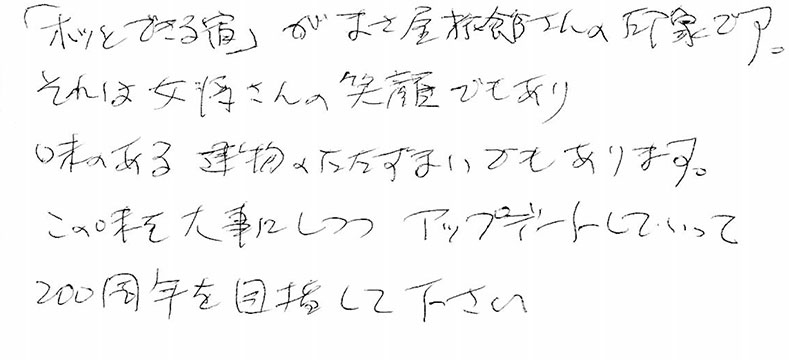 「ホッとできる宿」がまさ屋旅館さんの印象でア。
それは女将さんの笑顔でもあり
味のある建物のたたずまいでもあります。
この味を大事にしつつ アップデートしていって
200周年を目指して下さい